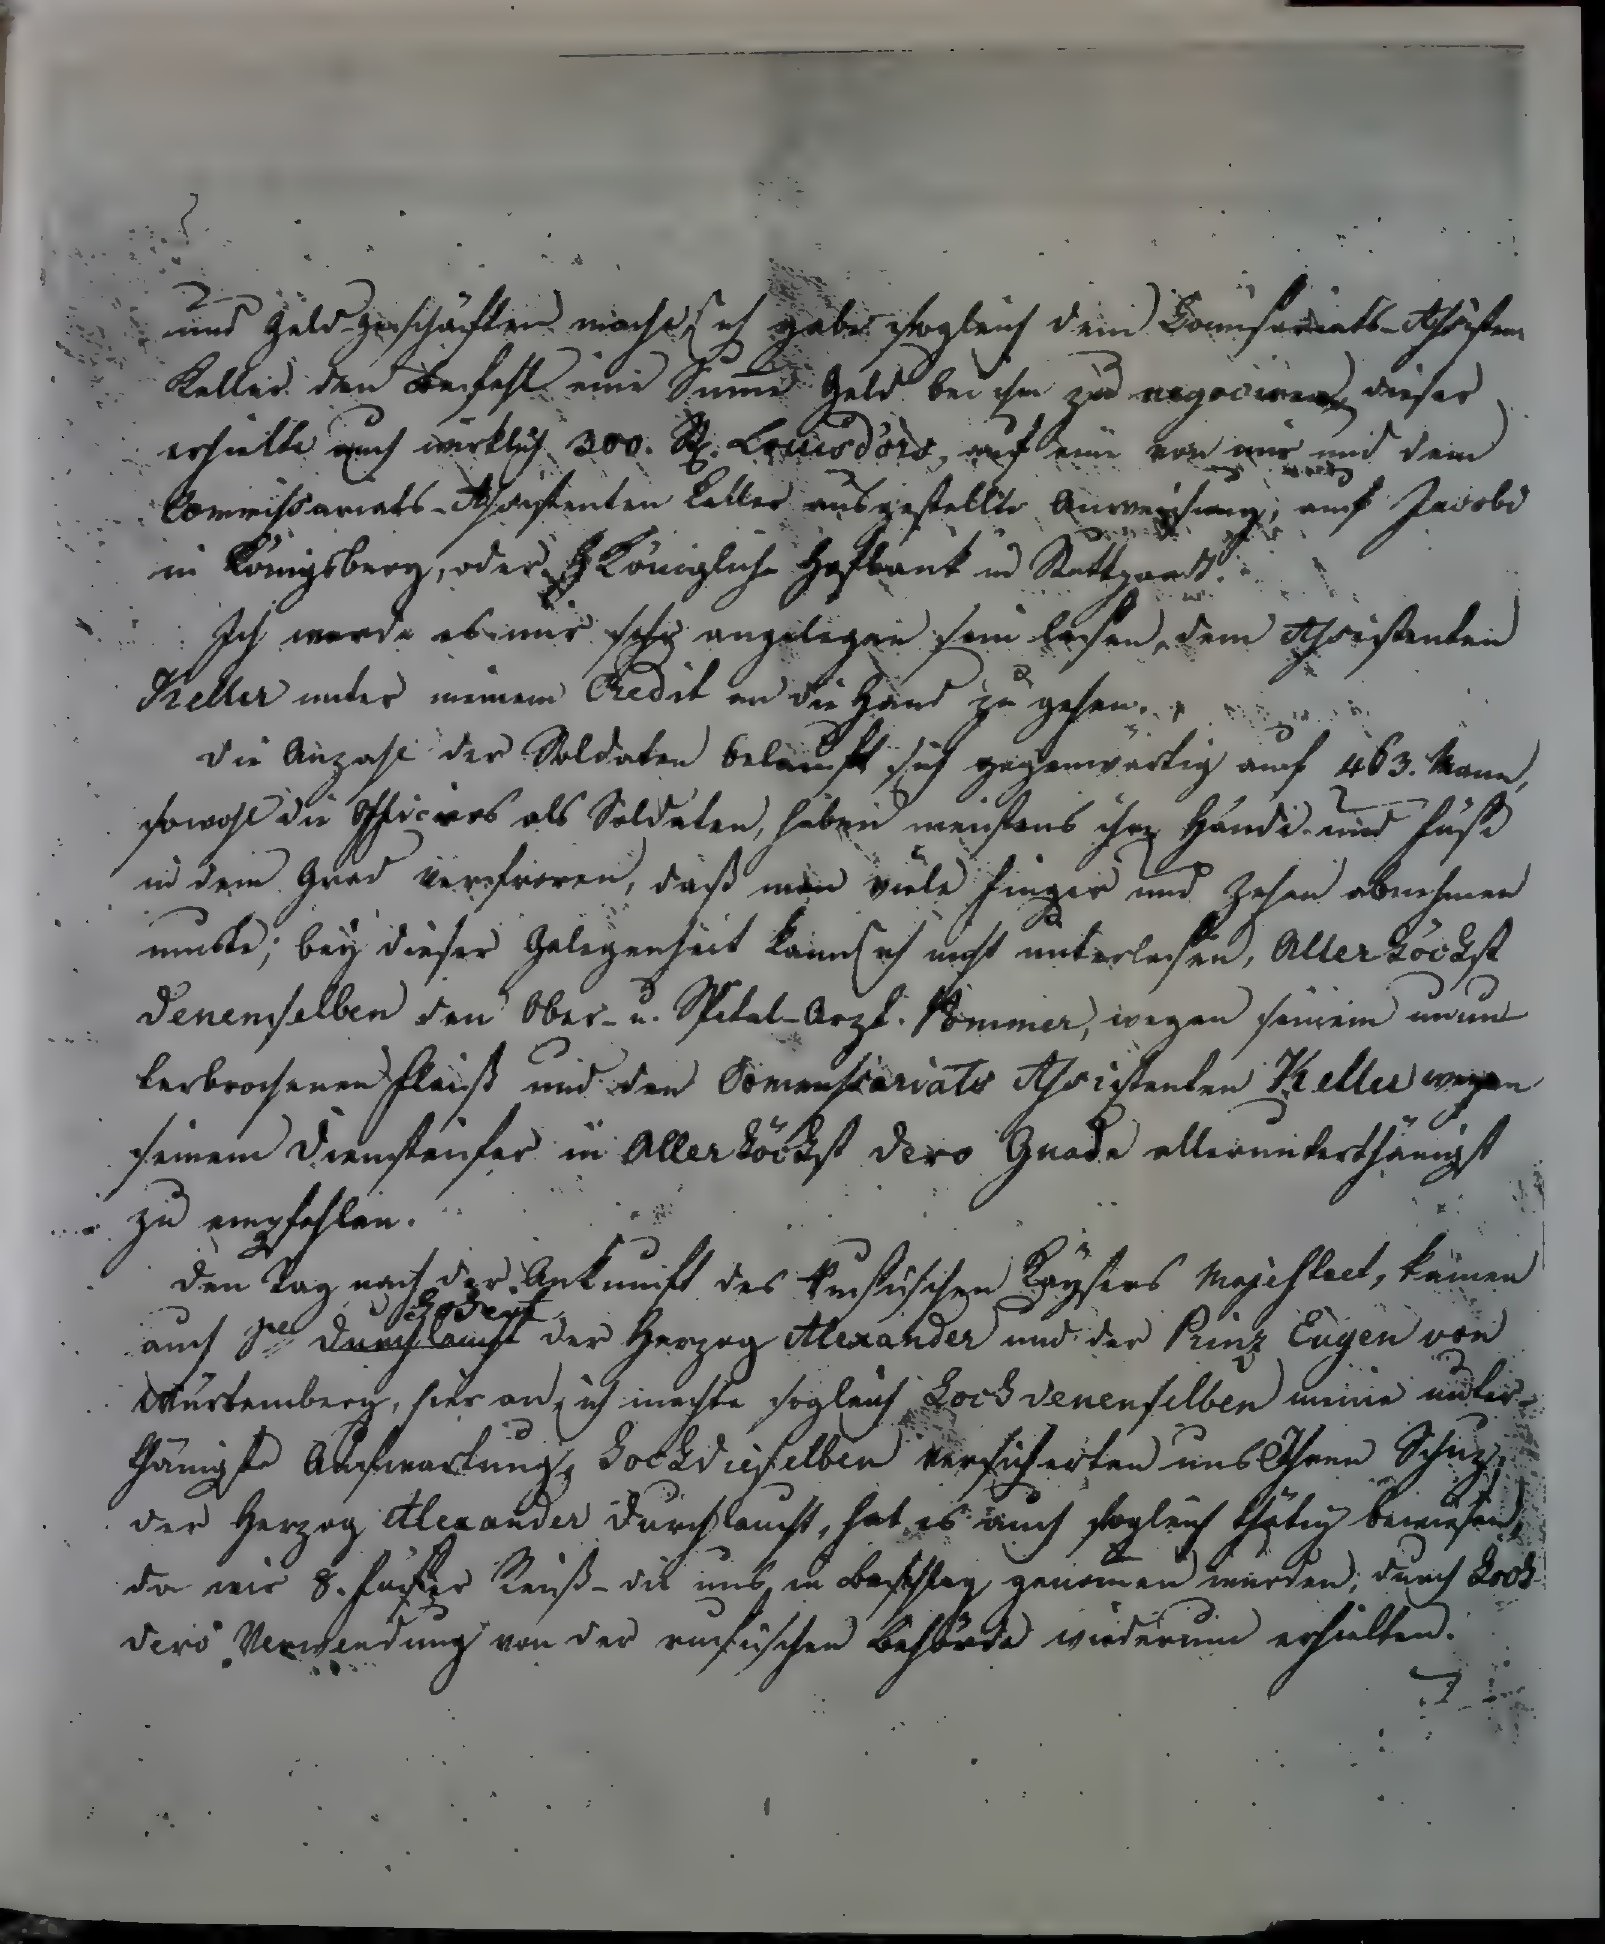 und Geld-Geschäften macht, ich gabe sogleich dem Commissariats-Assistent
Keller den Befehl eine Summe Geld bei ihm zu negociren, dieser
erhielte auch wirklich 300. St. Louisdors, auf eine von mir und dem
Commissariats-Assistenten Keller ausgestellte Anweisung, auf Jacobi
in Königsberg, oder Königliche Hofbank in Stuttgardt.
Ich werde es mir sehr angelegen sein lassen, dem Assistenten
Keller unter meinem Credit an die Hand zu gehen.
Die Anzahl der Soldaten belauft sich gegenwärtig auf 463. Mann,
sowohl die Officiers als Soldaten, haben meistens ihre Hände und Füße
in dem Grad verfroren, daß man viele Finger und Zehen abnehmen
mußte; bey dieser Gelegenheit kann ich nicht unterlassen, Allerhöchst
denenselben den Ober- u. Spital-Arzt Pommer, wegen seinem unun
terbrochenen Fleiß und den Commissariats Assistenten Keller wegen
seinem Diensteifer in Allerhöchst dero Gnade allerunterthänigst
zu empfehlen.
Den Tag nach der Ankunft des Russischen Kaysers Majestaet, kamen
auch Se Hoheit
Durchlaucht der Herzog Alexander und der Prinz Eugen von
Würtemberg, hier an, ich machte sogleich Hochdenenselben meine unter-
thänigste Aufwartung, Hochdieselben versicherten uns Ihren Schuz,
der Herzog Alexander Durchlaucht, hat es auch sogleich thätig bewiesen,
da wir 8. Fässer Reiß- die uns in Beschlag genomen wurden, durch Hoch
dero Verwendung von der russischen Behörde wiederum erhielten.